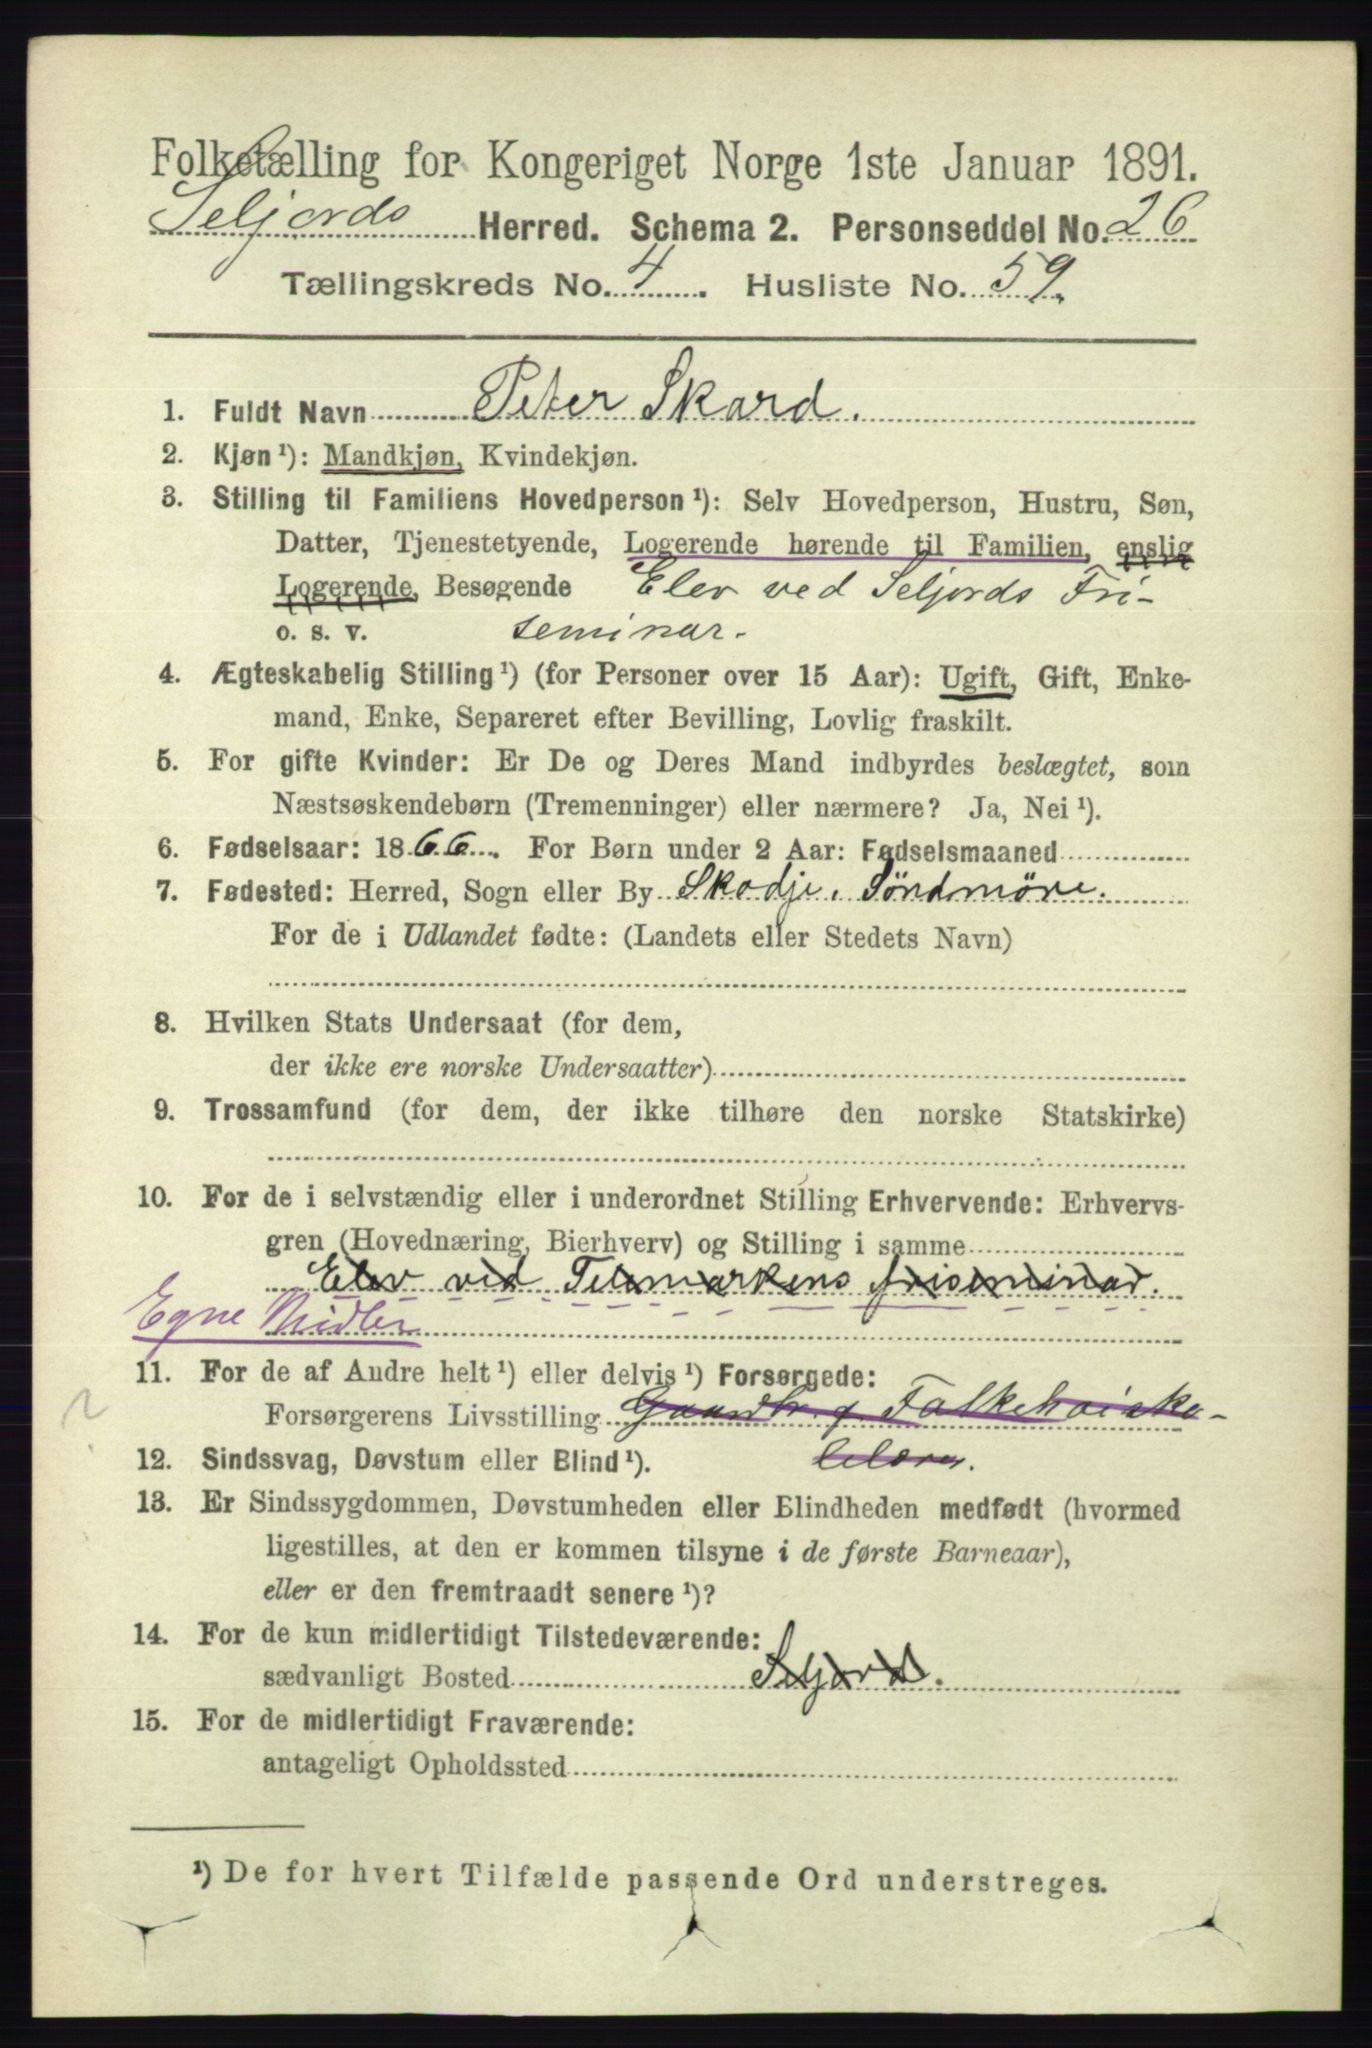 Folketælling for Kongeriget Norge 1ste Januar 1891.
Seljords Herred. Schema 2. Personseddel No. 26
Tællingskreds No. 4. Husliste No. 59.
1. Fuldt Navn Peter Skard.
2. Kjøn ¹): Mandkjøn, Kvindekjøn.
3. Stilling til Familiens Hovedperson ¹): Selv Hovedperson, Hustru, Søn,
Datter, Tjenestetyende, Logerende hørende til Familien, enslig
Logerende, Besøgende Elev ved Seljords Fri-
o. s. v. seminar.
4. Ægteskabelig Stilling ¹) (for Personer over 15 Aar): Ugift, Gift, Enke-
mand, Enke, Separeret efter Bevilling, Lovlig fraskilt.
5. For gifte Kvinder: Er De og Deres Mand indbyrdes beslægtet, som
Næstsøskendebørn (Tremenninger) eller nærmere? Ja, Nei ¹).
6. Fødselsaar: 1866. For Børn under 2 Aar: Fødselsmaaned
7. Fødested: Herred, Sogn eller By Skodje, Söndmöre.
For de i Udlandet fødte: (Landets eller Stedets Navn)
8. Hvilken Stats Undersaat (for dem,
der ikke ere norske Undersaatter)
9. Trossamfund (for dem, der ikke tilhøre den norske Statskirke)
10. For de i selvstændig eller i underordnet Stilling Erhvervende: Erhvervs-
gren (Hovednæring, Bierhverv) og Stilling i samme
Elev ved Telemarkens friseminar.
Egne Midler
11. For de af Andre helt ¹) eller delvis ¹) Forsørgede:
Forsørgerens Livsstilling Gaardbr. g. Folkehøisko-
12. Sindssvag, Døvstum eller Blind ¹). lelærer.
13. Er Sindssygdommen, Døvstumheden eller Blindheden medfødt (hvormed
ligestilles, at den er kommen tilsyne i de første Barneaar),
eller er den fremtraadt senere ¹)?
14. For de kun midlertidigt Tilstedeværende:
sædvanligt Bosted Seljord.
15. For de midlertidigt Fraværende:
antageligt Opholdssted
¹) De for hvert Tilfælde passende Ord understreges.